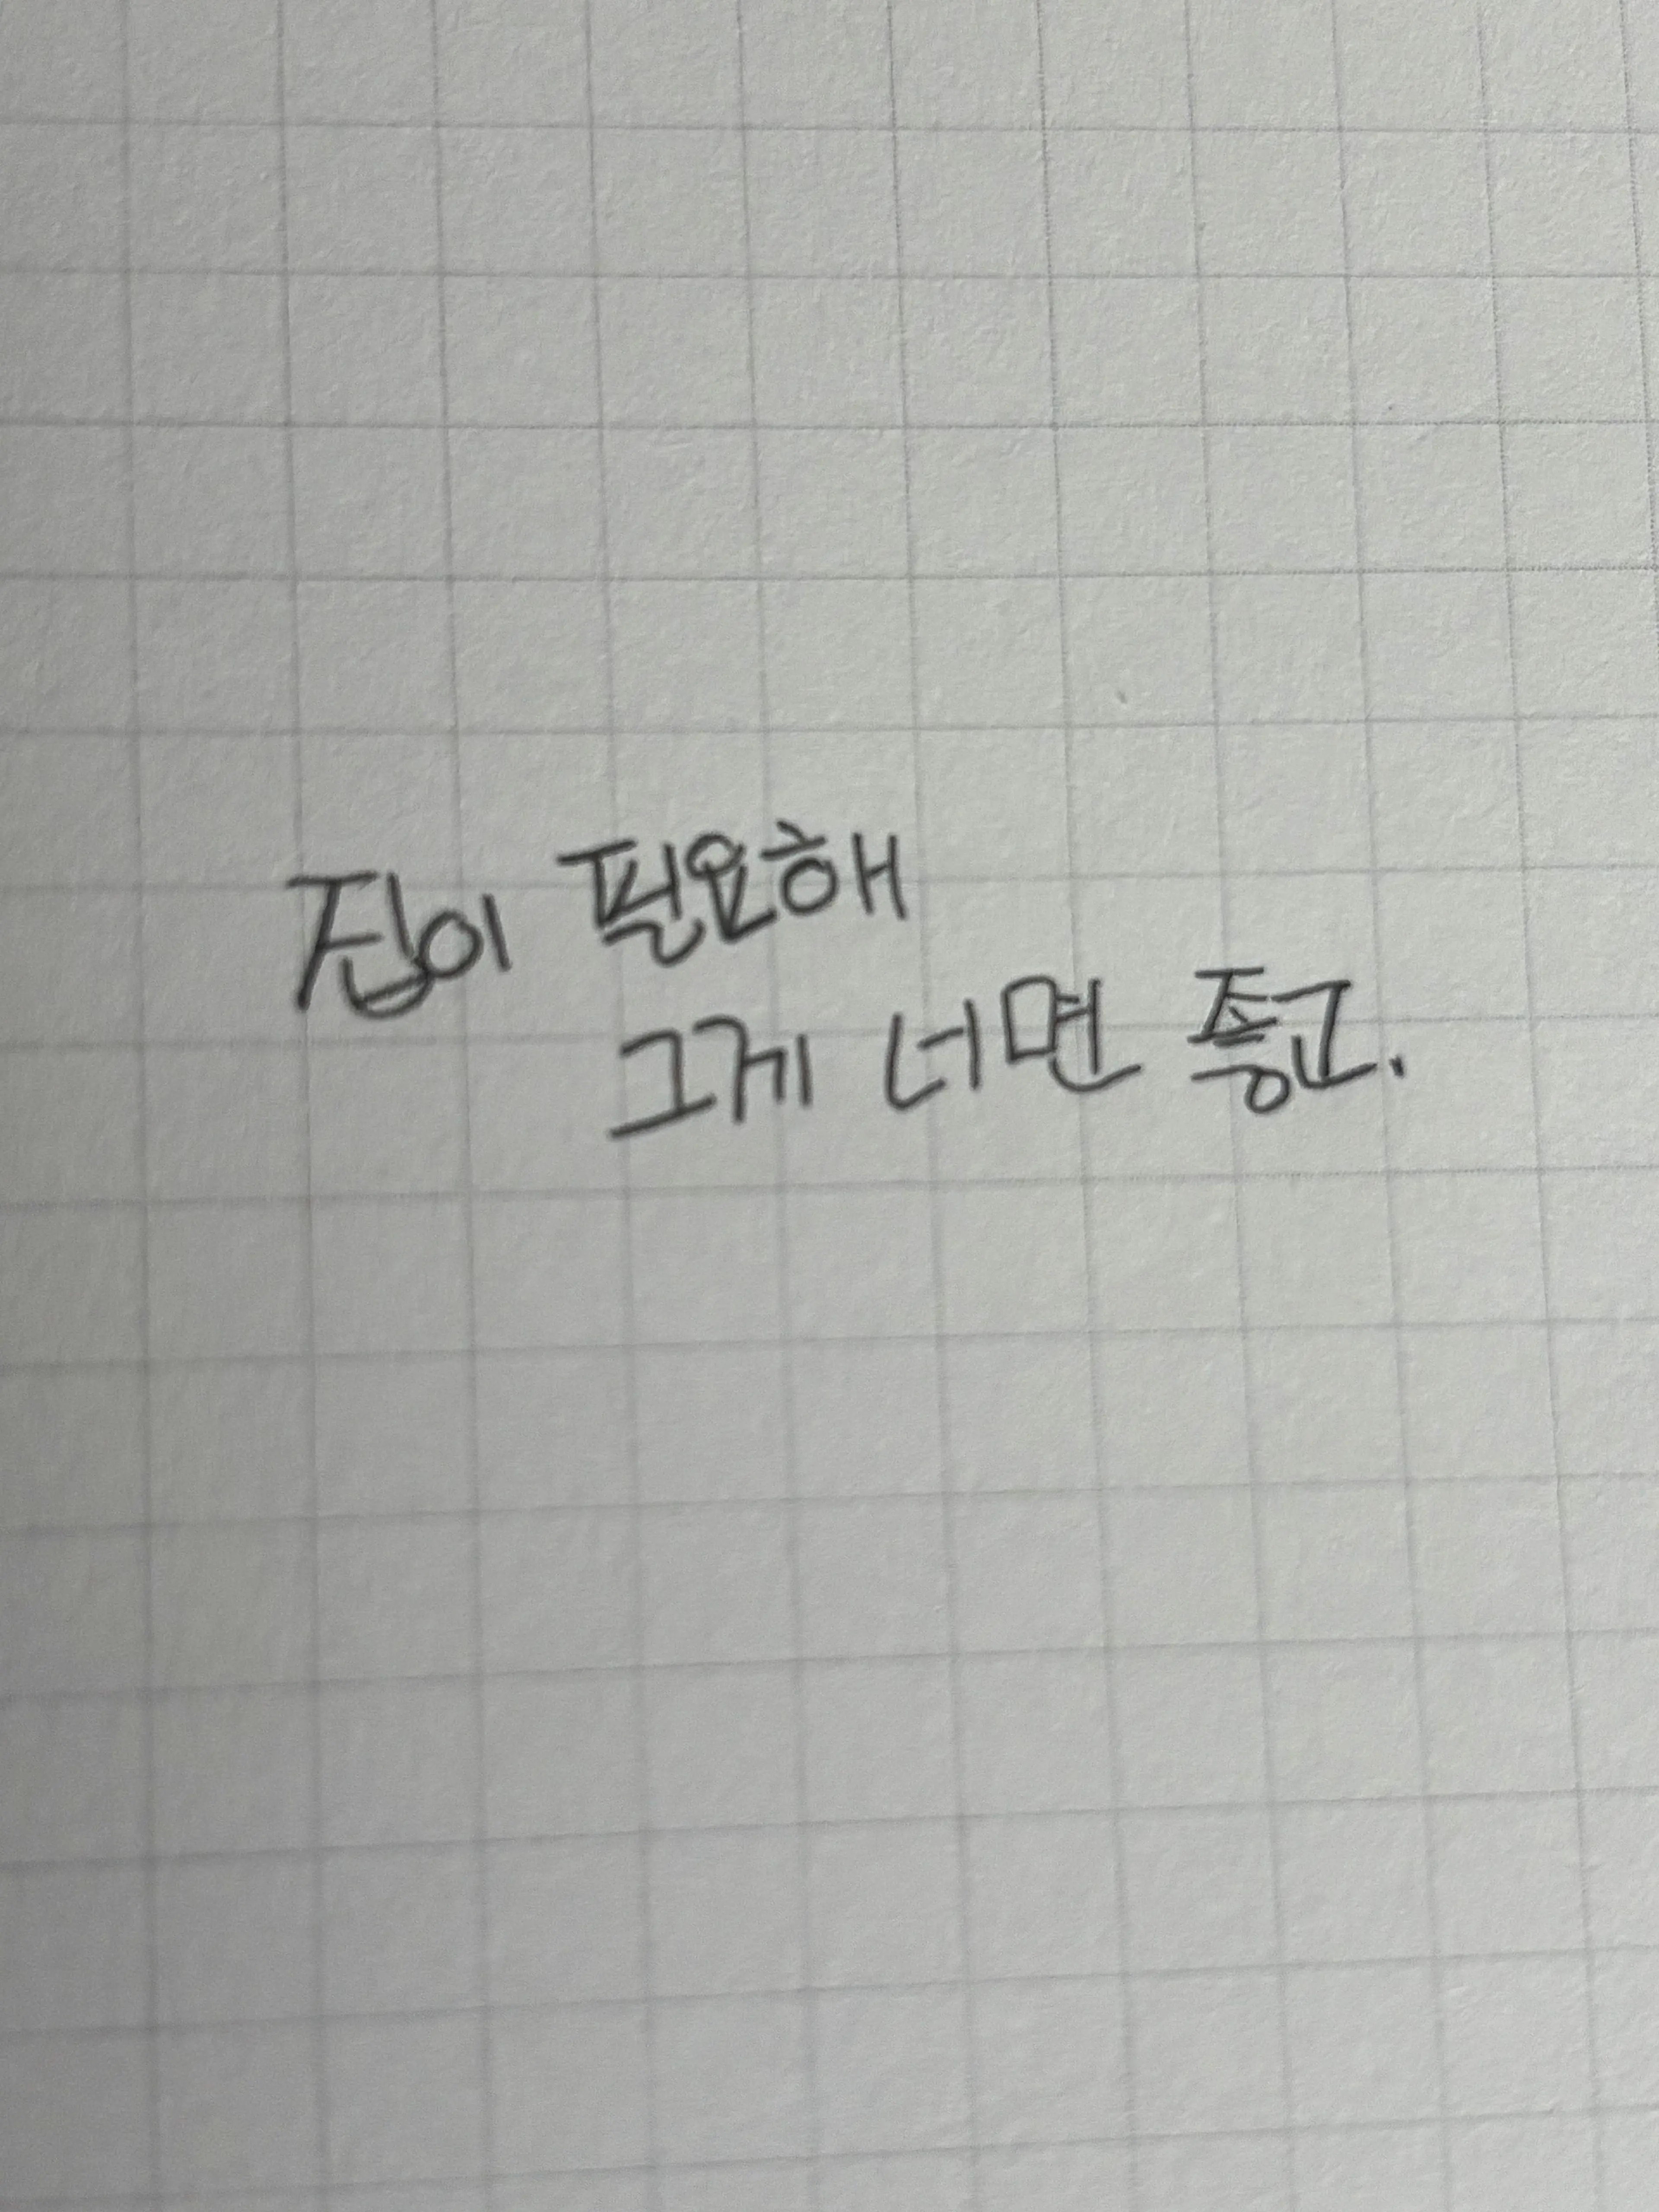 집이 필요해
그게 너면 좋고.